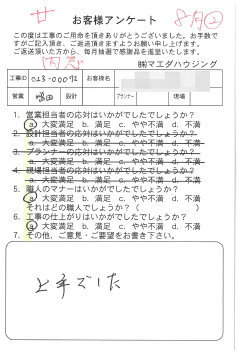 お客様アンケート
8月②
この度は工事のご用命を頂きありがとうございました。お手数で
すがご記入頂き、ご返送頂きますようお願い申し上げます。
ご返送頂いた方から、毎月抽選で感謝品を進呈いたします。
内窓
㈱マエダハウジング
工事ID 023-00092 お客様名
営業 設計 プランナー 現場
1. 営業担当者の応対はいかがでしたでしょうか?
a. 大変満足 b. 満足 c. やや不満 d. 不満
2. 設計担当者の応対はいかがでしたでしょうか?
a. 大変満足 b. 満足 c. やや不満 d. 不満
3. プランナーの応対はいかがでしたでしょうか?
a. 大変満足 b. 満足 c. やや不満 d. 不満
4. 現場担当者の応対はいかがでしたでしょうか?
a. 大変満足 b. 満足 c. やや不満 d. 不満
5. 職人のマナーはいかがでしたでしょうか?
a. 大変満足 b. 満足 c. やや不満 d. 不満
それはどの職人でしょうか?( )
6. 工事の仕上がりはいかがでしたでしょうか?
a. 大変満足 b. 満足 c. やや不満 d. 不満
7. その他、ご意見・ご要望をお書き下さい。
上手でした